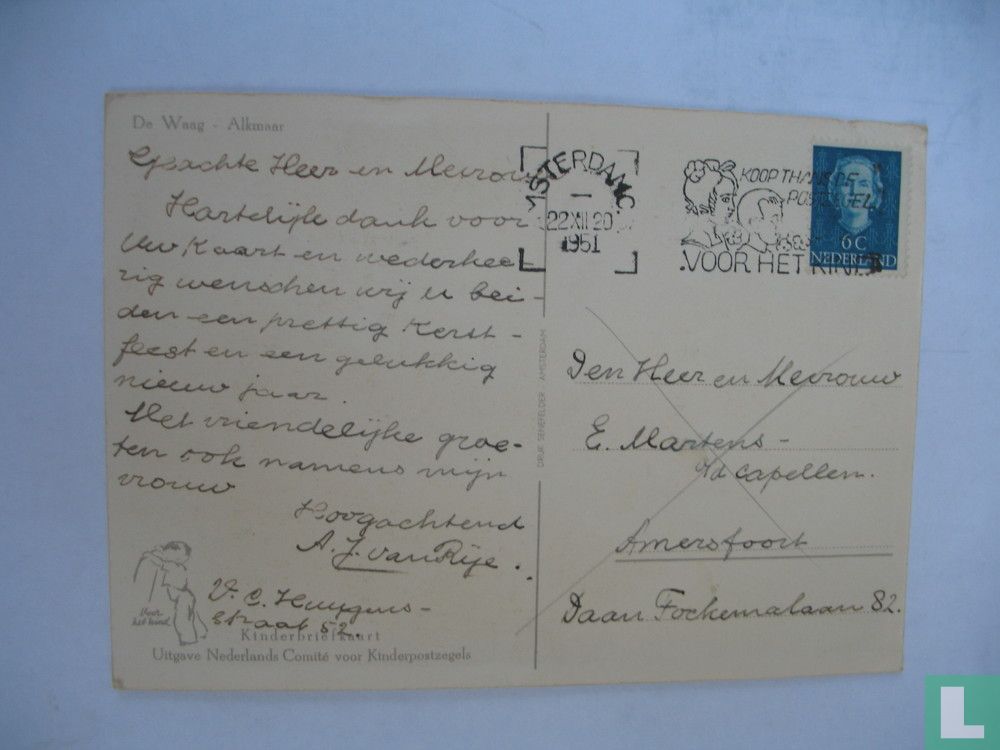 De Waag - Alkmaar
Geachte Heer en Mevrouw
Hartelijk dank voor
Uw Kaart en wederkee-
rig wenschen wij u bei-
den een prettig Kerst-
feest en een gelukkig
nieuw jaar.
Met vriendelijke groe-
ten ook namens mijn
vrouw
Hoogachtend
A. J. van Rije.
V. C. Huygens-
straat 52.
Voor
het kind
Kinderbriefkaart
Uitgave Nederlands Comité voor Kinderpostzegels
DRUK SENEFELDER - AMSTERDAM
MSTERDAM C.
22 XII 20
1951
KOOP THANS DE
POSTZEGEL
VOOR HET KIND
6 C
NEDERLAND
Den Heer en Mevrouw
E. Martens-
v/d Capellen.
Amersfoort
Daan Fockemalaan 82.
L